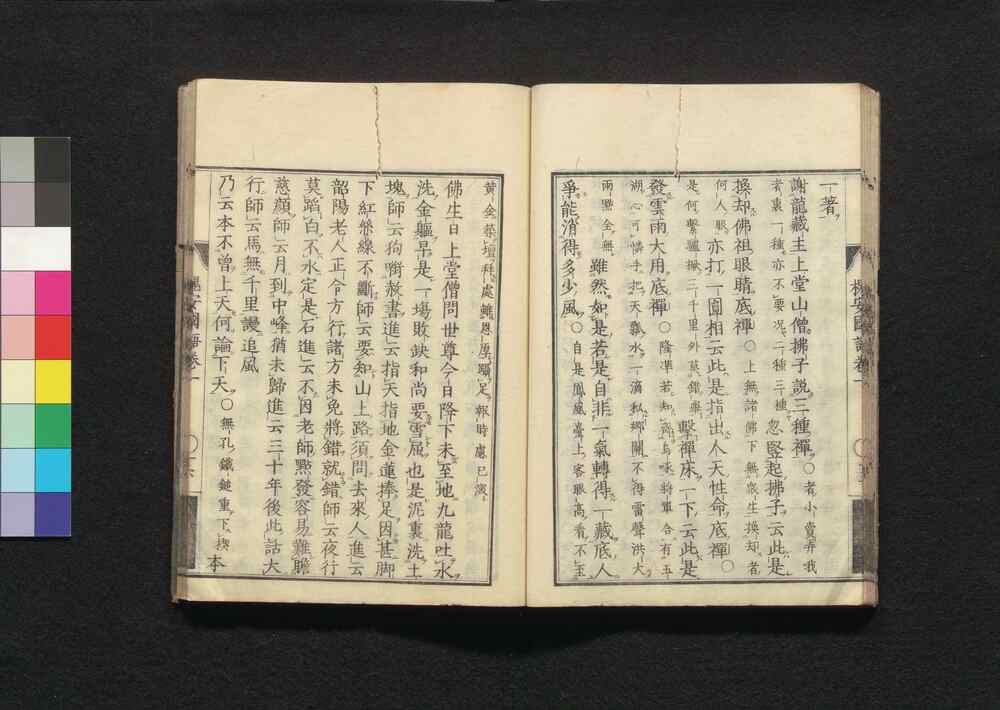 一著
謝龍藏主上堂山僧拂子說三種禪○者小賣弄我
者裏一種亦不要況二種三種忽竪起拂子云此是
換却佛祖眼睛底禪○上無諸佛下無衆生換却者
何人眼亦打一圓相云此是指出人天性命底禪○
是何繫驢橛三千里外莫錯舉擊禪床一下云此是
發雲雨大用底禪○隆準若知
湖心可憐手把天瓢水一滴私鄉關不得雷聲洪大
雨點全無雖然如是若是自非一氣轉得一藏底人
爭能消得多少風○自是鳳凰臺上客眼高看不
槐安國語卷一
黃金築壇拜處雖恩厚躡足報時慮已深
佛生日上堂僧問世尊今日降下未至地九龍吐水
洗金軀早是一場敗缺和尚要雪屈也是泥裏洗土
塊師云狗銜赦書進云指天指地金蓮捧足因甚脚
下紅絲線不斷師云要知山上路須問去來人進云
韶陽老人正令方行諸方未免將錯就錯師云夜行
莫蹈白不水定是石進云不因老師點發容易難瞻
慈顏師云月到中峰猶未歸進云三十年後此話大
行師云馬無千里謾追風
乃云本不曾上天何論下天○無孔鐵鎚重下楔本
槐安國語卷一